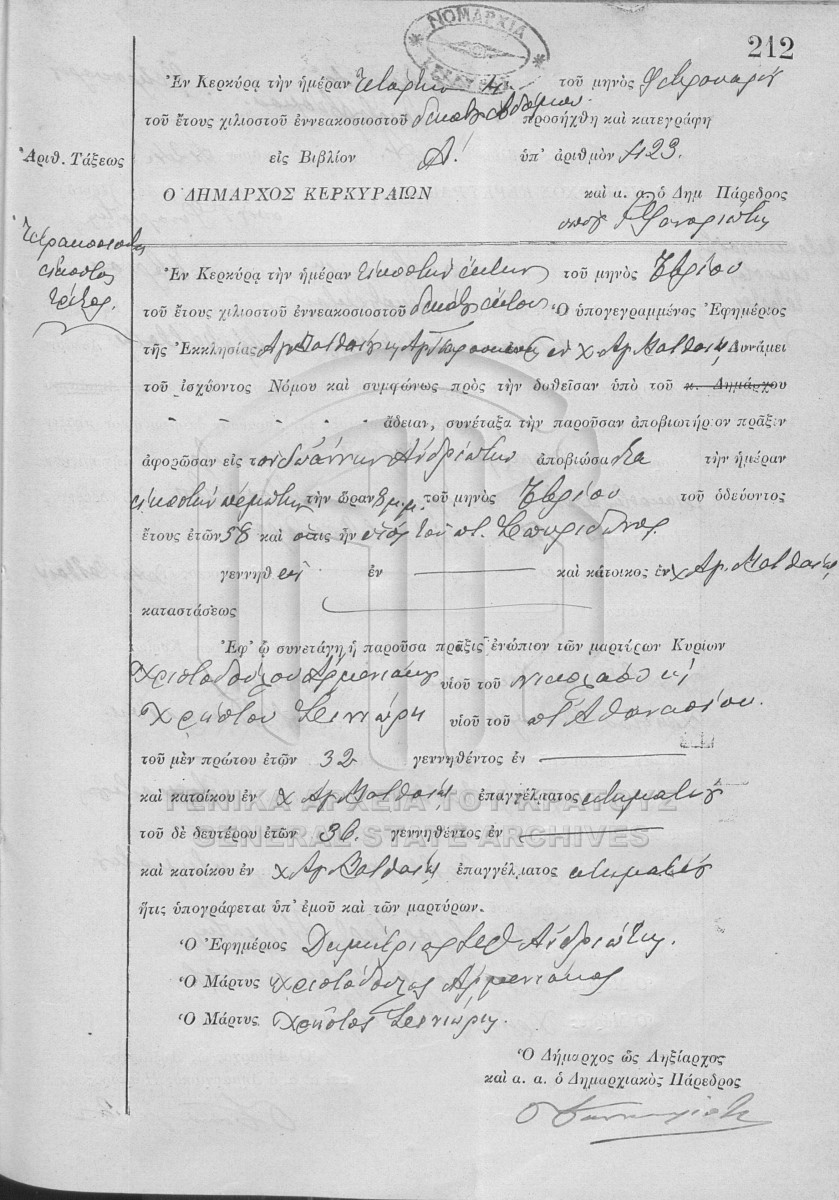 ΝΟΜΑΡΧΙΑ
212
Ἐν Κερκύρᾳ τὴν ἡμέραν τετάρτην 4 τοῦ μηνὸς Φεβρουαρίου
τοῦ ἔτους χιλιοστοῦ ἐννεακοσιοστοῦ δεκάτου ἑβδόμου προσήχθη καὶ κατεγράφη
Ἀριθ. Τάξεως
εἰς Βιβλίον Α! ὑπ' ἀριθμὸν 423.
Ο ΔΗΜΑΡΧΟΣ ΚΕΡΚΥΡΑΙΩΝ
καὶ α. α. ὁ Δημ Πάρεδρος
Τετρακοσιοστὸς
εἰκοστὸς
τρίτος.
Ἐν Κερκύρᾳ τὴν ἡμέραν εἰκοστὴν ἕκτην τοῦ μηνὸς 7βρίου
τοῦ ἔτους χιλιοστοῦ ἐννεακοσιοστοῦ δεκάτου ἕκτου Ὁ ὑπογεγραμμένος Ἐφημέριος
τῆς Ἐκκλησίας Ἁγ. Ματθαίου κ Ἁγ. Παρασκευῆς ἐν χ Ἁγ. Ματθαίου Δυνάμει
τοῦ ἰσχύοντος Νόμου καὶ συμφώνως πρὸς τὴν δοθεῖσαν ὑπὸ τοῦ κ. Δημάρχου
ἄδειαν, συνέταξα τὴν παροῦσαν ἀποβιωτήριον πρᾶξιν
ἀφορῶσαν εἰς τὸν Ἰωάννην Ἀνδριώτην ἀποβιώσαντα τὴν ἡμέραν
εἰκοστὴν πέμπτην τὴν ὥραν 8 μ.μ. τοῦ μηνὸς 7βρίου τοῦ ὁδεύοντος
ἔτους ἐτῶν 58 καὶ ὅστις ἦν υἱὸς τοῦ π. Σπυρίδωνος.
γεννηθεὶς ἐν καὶ κάτοικος ἐν χ Ἁγ. Ματθαίου
καταστάσεως
Ἐφ' ᾧ συνετάγη ἡ παροῦσα πρᾶξις ἐνώπιον τῶν μαρτύρων Κυρίων
Χριστοδούλου Ἀρμενιάκου υἱοῦ τοῦ Νικολάου κ
Χρήστου υἱοῦ τοῦ π. Ἀθανασίου.
τοῦ μὲν πρώτου ἐτῶν 32 γεννηθέντος ἐν
καὶ κατοίκου ἐν χ Ἁγ. Ματθαίου ἐπαγγέλματος κτηματίου
ΓΕΝΙΚΑ ΑΡΧΕΙΑ ΤΟΥ ΚΡΑΤΟΥΣ
τοῦ δὲ δευτέρου ἐτῶν 36. γεννηθέντος ἐν
GENERAL STATE ARCHIVES
καὶ κατοίκου ἐν χ Ἁγ. Ματθαίου ἐπαγγέλματος κτηματίου
ἥτις ὑπογράφεται ὑπ' ἐμοῦ καὶ τῶν μαρτύρων.
Ὁ Ἐφημέριος Δημήτριος Ἀνδριώτης.
Ὁ Μάρτυς Χριστόδουλος Ἀρμενιάκος
Ὁ Μάρτυς Χρῆστος
Ὁ Δήμαρχος ὡς Ληξίαρχος
καὶ α. α. ὁ Δημαρχιακὸς Πάρεδρος